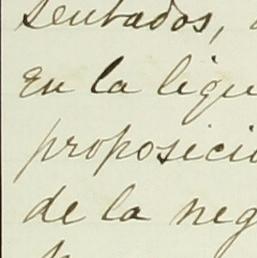 sentados,
En la liqu
proposici
de la neg